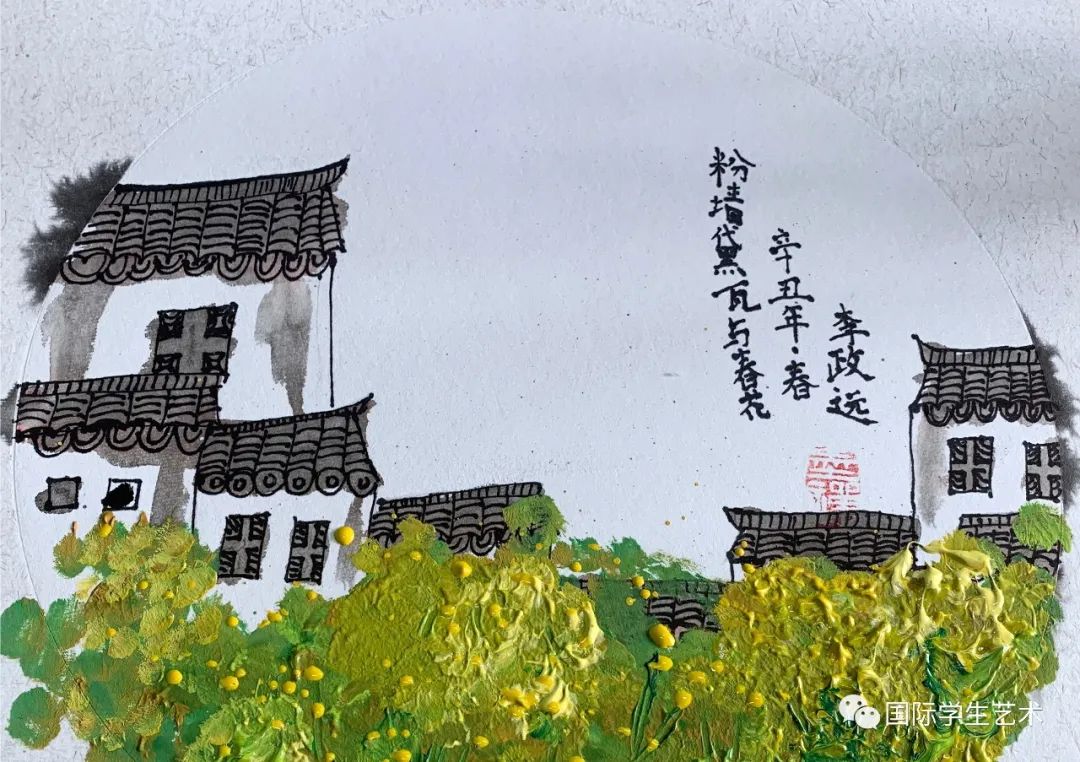 粉墙黛瓦与春花
辛丑年·春
李政远
国际学生艺术